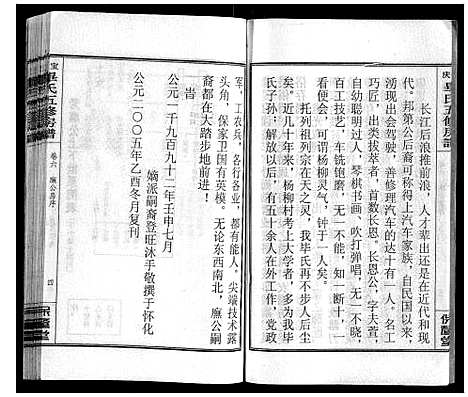 长江后浪推前浪，人才辈出还是在近代和现
代。邦第公后裔可称得上汽车家族，自民国以来，
涌现出会驾驶，善修理汽车的达十有一人，名工
巧匠，出类拔萃者，首数长恩。长恩公，字夫萱，
自幼聪明过人，琴棋书画、吹打弹唱，无一不晓，
有技工艺，车铣铇磨，无一不能，知一断十，一
看便会，可谓有杨柳灵气，钟于一人矣。
托列祖列宗在天之灵，我毕氏再不步人后尘
矣，近几十年来，杨柳村考上大学者，多为我毕
氏子孙，解放以后，有五十余人在外工作，党政
军，工农兵，各行各业，都有能人。尖端技术露
头角，保家卫国有英模。无论东西南北，廡公嗣
裔都在大踏步地前进！
旹
公元一千九百九十二年壬申七月
嫡派嗣裔登旺沐手敬撰于怀化
公元二〇〇五年乙酉冬月复刊
毕氏五修房谱
卷六
廡公房序
四
保釐堂